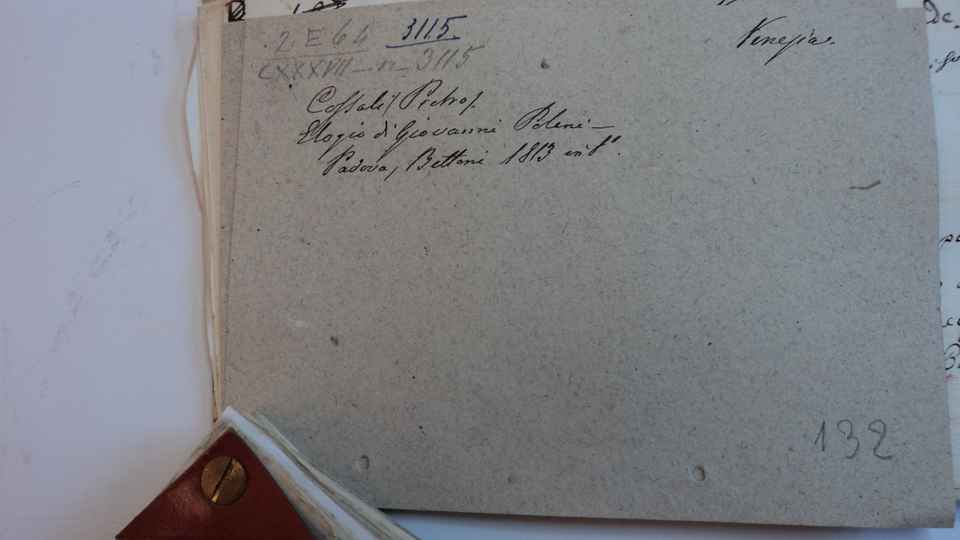 2 E 64 3115
CXXXVII - n - 3115
Venezia.
Cossali (Pietro).
Elogio di Giovanni Poleni -
Padova, Bettoni 1813 in f°.
132